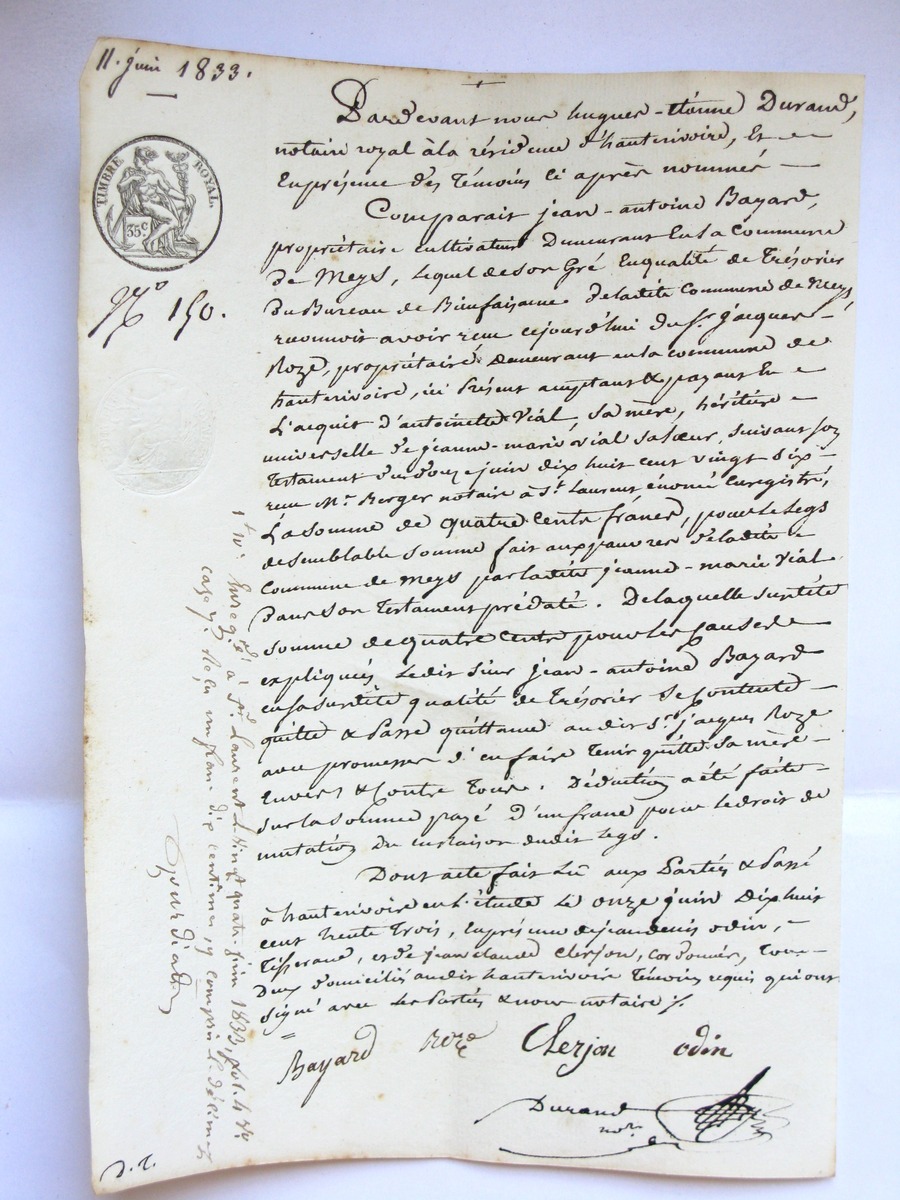 11. juin 1833.
TIMBRE ROYAL.
35c
No 150.
Pardevant nous hugues-Etienne Durand,
notaire royal à la résidence d'hauterivoire, Et
En présence des Témoins ci après nommés
Comparait jean-antoine Bayard,
propriétaire cultivateur Demeurant En la Commune
De Meys, lequel de son Gré En qualité de Trésorier
du Bureau de Bienfaisance De ladite Commune de Meys
reconnoit avoir reçu cejourd'hui du Sr. jacques
Roze, propriétaire Demeurant en la commune de
hauterivoire, ici Présent acceptant & payant En
L'acquit d'antoinette Vial, sa mère, héritière
universelle de jeanne-marie Vial sa soeur, suivant son
Testament du douze juin dix huit cent vingt six
reçu Me. Berger notaire à St. Laurent énoncé Enregistré,
La somme de quatre cents francs, pour le legs
de semblable somme fait aux pauvres de ladite
Commune de Meys par ladite jeanne-marie Vial
Dans son Testament prédaté. De laquelle susdite
somme de quatre cents pour les causes
expliquées Ledit sieur jean-antoine Bayard
en sa susdite qualité de Trésorier se Contente
quitte & Passe quittance audit Sr. jacques Roze
avec promesse d'en faire Tenir quitte sa mère
Envers & Contre Tous. Déduction a été faite
sur la somme payé d'un franc pour le droit de
mutation du en raison dudit legs.
Dont acte fait Lu aux Parties & Passé
à hauterivoire en l'étude Le onze juin Dix huit
cent trente Trois, En présence de jean denis odin,
Tisserand, et de jean claude Clerjon, cordonnier, Tous
Deux domiciliés audit hauterivoire Témoins requis qui ont
signé avec Les Parties & nous notaire
Bayard Roze Clerjon odin
Durand
nore
Enregé. à St. Laurent Le vingt quatre juin 1833, fol. 4 vo
case 7. Reçu un franc dix centimes y compris le décime
D. T.